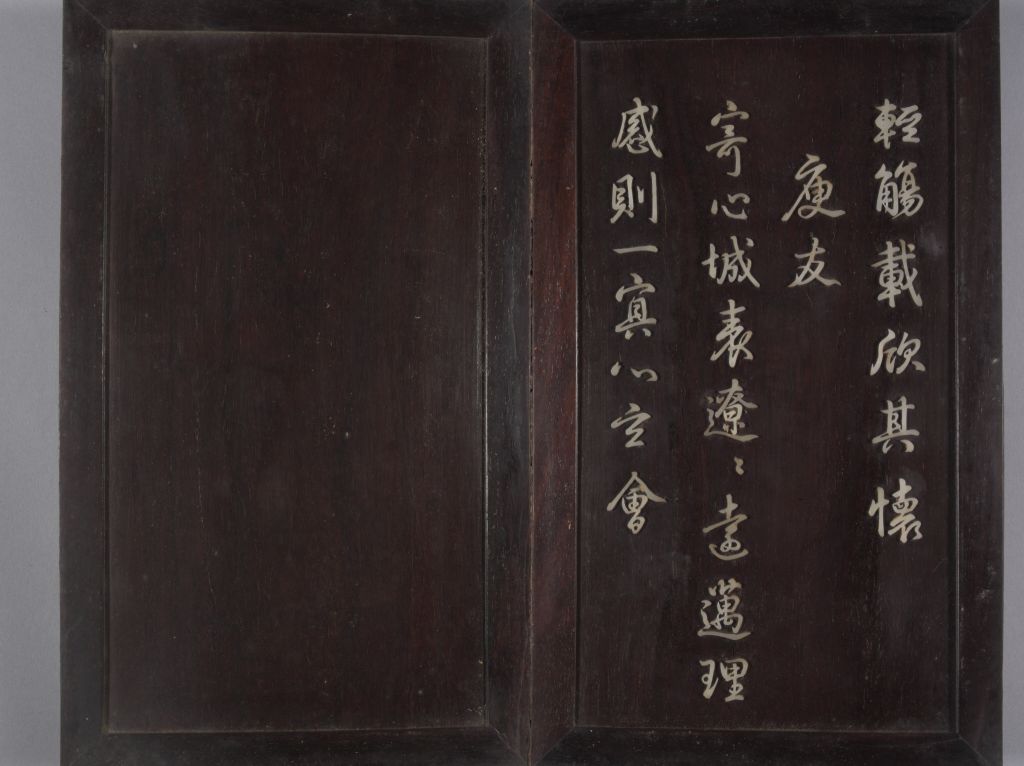 輕觴載欣其懷
庾友
寄心城表遼〻遠邁理
感則一寘心玄會